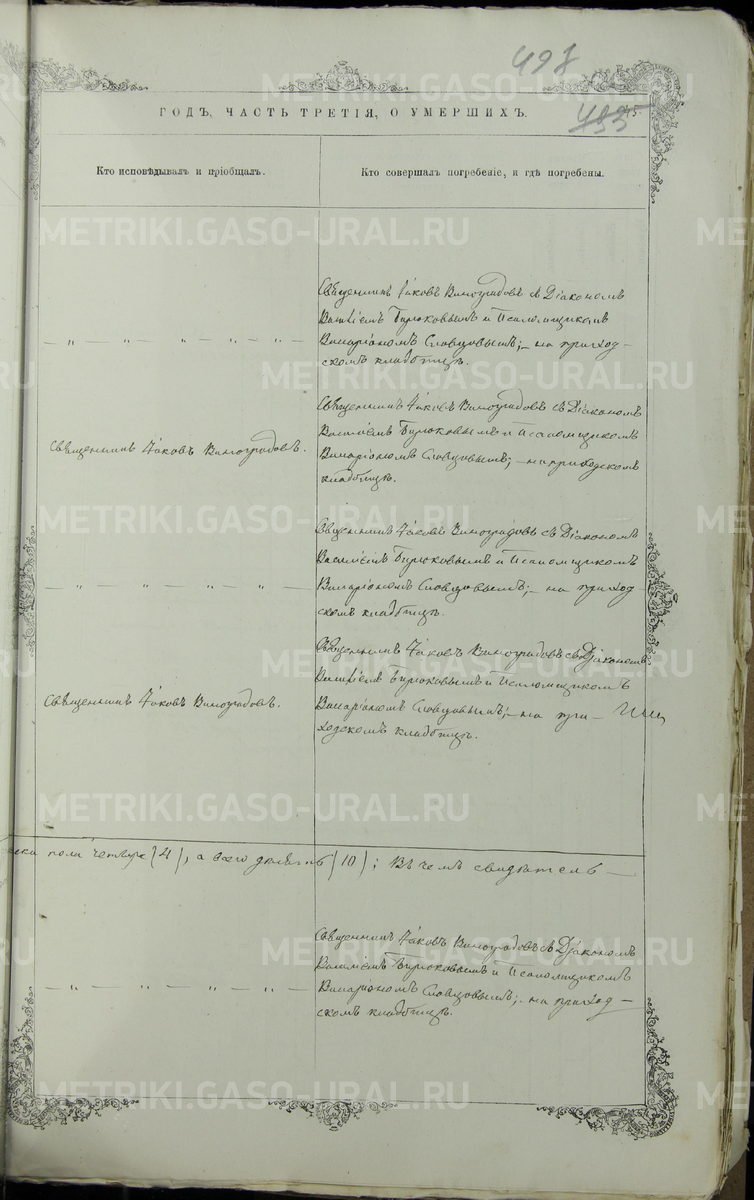 498
433
ГОДЪ, ЧАСТЬ ТРЕТІЯ, О УМЕРШИХЪ.
Кто исповѣдывалъ и пріобщалъ.
Кто совершалъ погребеніе, и гдѣ погребены.
Священникъ Іаковъ Виноградовъ съ Діакономъ
Василіемъ Бирюковымъ и Псаломщикомъ
— „ — „ — „ — „ — „ —
Виссаріономъ Словцовымъ; — на приход-
скомъ кладбищѣ.
Священникъ Іаковъ Виноградовъ съ Діакономъ
Василіемъ Бирюковымъ и Псаломщикомъ
Священникъ Іаковъ Виноградовъ.
Виссаріономъ Словцовымъ; — на приходскомъ
кладбищѣ.
Священникъ Іаковъ Виноградовъ съ Діакономъ
Василіемъ Бирюковымъ и Псаломщикомъ
— „ — „ — „ — „ —
Виссаріономъ Словцовымъ; — на приход-
скомъ кладбищѣ.
Священникъ Іаковъ Виноградовъ съ Діакономъ
Василіемъ Бирюковымъ и Псаломщикомъ
Священникъ Іаковъ Виноградовъ.
Виссаріономъ Словцовымъ; — на при-
ходскомъ кладбищѣ.
пола четверо (4), а всего десять (10); Въ чемъ свидѣтель-
Священникъ Іаковъ Виноградовъ съ Діакономъ
Василіемъ Бирюковымъ и Псаломщикомъ
— „ — „ — „ — „ —
Виссаріономъ Словцовымъ; — на приход-
скомъ кладбищѣ.
METRIKI.GASO-URAL.RU